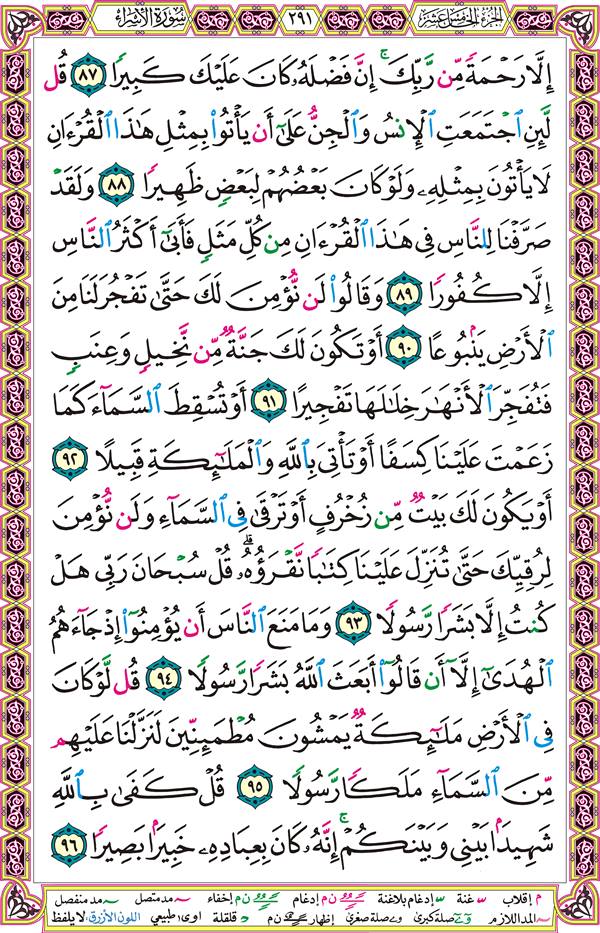 الجزء الخامس عشر ٢٩١ سورة الإسراء
إِلَّا رَحْمَةً مِّن رَّبِّكَ ۚ إِنَّ فَضْلَهُۥ كَانَ عَلَيْكَ كَبِيرًا ٨٧ قُل
لَّئِنِ ٱجْتَمَعَتِ ٱلْإِنسُ وَٱلْجِنُّ عَلَىٰٓ أَن يَأْتُوا۟ بِمِثْلِ هَٰذَا ٱلْقُرْءَانِ
لَا يَأْتُونَ بِمِثْلِهِۦ وَلَوْ كَانَ بَعْضُهُمْ لِبَعْضٍ ظَهِيرًا ٨٨ وَلَقَدْ
صَرَّفْنَا لِلنَّاسِ فِى هَٰذَا ٱلْقُرْءَانِ مِن كُلِّ مَثَلٍ فَأَبَىٰٓ أَكْثَرُ ٱلنَّاسِ
إِلَّا كُفُورًا ٨٩ وَقَالُوا۟ لَن نُّؤْمِنَ لَكَ حَتَّىٰ تَفْجُرَ لَنَا مِنَ
ٱلْأَرْضِ يَنۢبُوعًا ٩٠ أَوْ تَكُونَ لَكَ جَنَّةٌ مِّن نَّخِيلٍ وَعِنَبٍ
فَتُفَجِّرَ ٱلْأَنْهَٰرَ خِلَٰلَهَا تَفْجِيرًا ٩١ أَوْ تُسْقِطَ ٱلسَّمَآءَ كَمَا
زَعَمْتَ عَلَيْنَا كِسَفًا أَوْ تَأْتِىَ بِٱللَّهِ وَٱلْمَلَٰٓئِكَةِ قَبِيلًا ٩٢
أَوْ يَكُونَ لَكَ بَيْتٌ مِّن زُخْرُفٍ أَوْ تَرْقَىٰ فِى ٱلسَّمَآءِ وَلَن نُّؤْمِنَ
لِرُقِيِّكَ حَتَّىٰ تُنَزِّلَ عَلَيْنَا كِتَٰبًا نَّقْرَؤُهُۥ ۗ قُلْ سُبْحَانَ رَبِّى هَلْ
كُنتُ إِلَّا بَشَرًا رَّسُولًا ٩٣ وَمَا مَنَعَ ٱلنَّاسَ أَن يُؤْمِنُوٓا۟ إِذْ جَآءَهُمُ
ٱلْهُدَىٰٓ إِلَّآ أَن قَالُوٓا۟ أَبَعَثَ ٱللَّهُ بَشَرًا رَّسُولًا ٩٤ قُل لَّوْ كَانَ
فِى ٱلْأَرْضِ مَلَٰٓئِكَةٌ يَمْشُونَ مُطْمَئِنِّينَ لَنَزَّلْنَا عَلَيْهِم
مِّنَ ٱلسَّمَآءِ مَلَكًا رَّسُولًا ٩٥ قُلْ كَفَىٰ بِٱللَّهِ
شَهِيدًۢا بَيْنِى وَبَيْنَكُمْ ۚ إِنَّهُۥ كَانَ بِعِبَادِهِۦ خَبِيرًۢا بَصِيرًا ٩٦
م إقلاب غنة إدغام بلاغنة ن م إدغام إخفاء مد متصل مد منفصل
المد اللازم صلة كبرى صلة صغرى إظهار ن م قلقلة اوى طبيعي اللون الأزرق: لا يلفظ